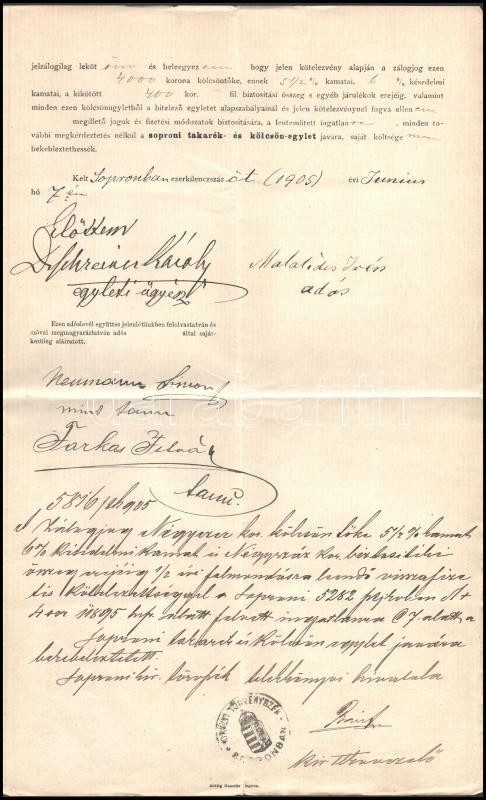 jelzálogilag leköt öm és beleegyezem hogy jelen kötelezvény alapján a zálogjog ezen
4000 korona kölcsöntőke, ennek 5 1/2 % kamatai, 6 % késedelmi
kamatai, a kikötött 400 kor. fil biztositási összeg s egyéb járulékok erejéig. valamint
minden ezen kölcsönügyletből a hitelező egyletet alapszabályainál és jelen kötelezvénynél fogva ellenem
megillető jogok és fizetési módozatok biztositására, a fentemlitett ingatlanra, minden to-
vábbi megkérdeztetés nélkül a soproni takarék- és kölcsön-egylet javára, saját költségemre
bekebleztethessék.
Kelt Sopronban ezerkilenczszáz öt (1905) évi Junius
hó 7-én
Előttem
Dr Schreiner Károly
egyleti ügyész
adós
Ezen adóslevél együttes jelenlétünkben felolvastatván és
szóval megmagyaráztatván adós által saját-
kezüleg aláiratott.
Neumann Simon
mint tanu
Farkas
tanu.
5816/tk 905
A zálogjog Négyezer kor. kölcsön tőke 5 1/2 % kamat
6% késedelmi kamat s Négyszáz kor. biztositéki
összeg erejéig 1/2 évi felmondásra leendő visszafize
tési kötelezettséggel a Soproni 5282 A+
4 sor 11895 hrsz. alatt felvett ingatlanra C 7. alatt a
Soproni takarék és Kölcsön egylet javára
bekebeleztetett.
Soproni kir. törvszék telekkönyvi hivatala
KIRÁLYI TÖRVÉNYSZÉK SOPRONBAN
darabanth